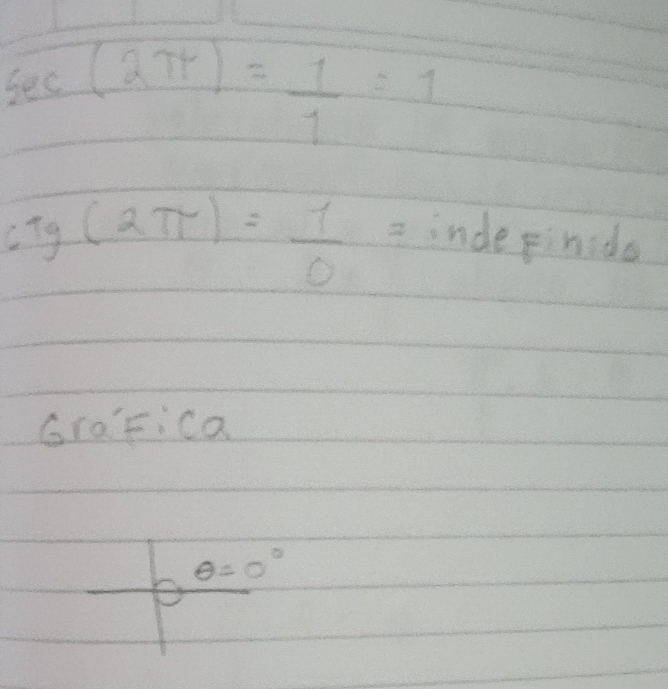 sec (2π) = 1/1 = 1
ctg (2π) = 1/0 = indefinido
Gráfica
θ = 0°